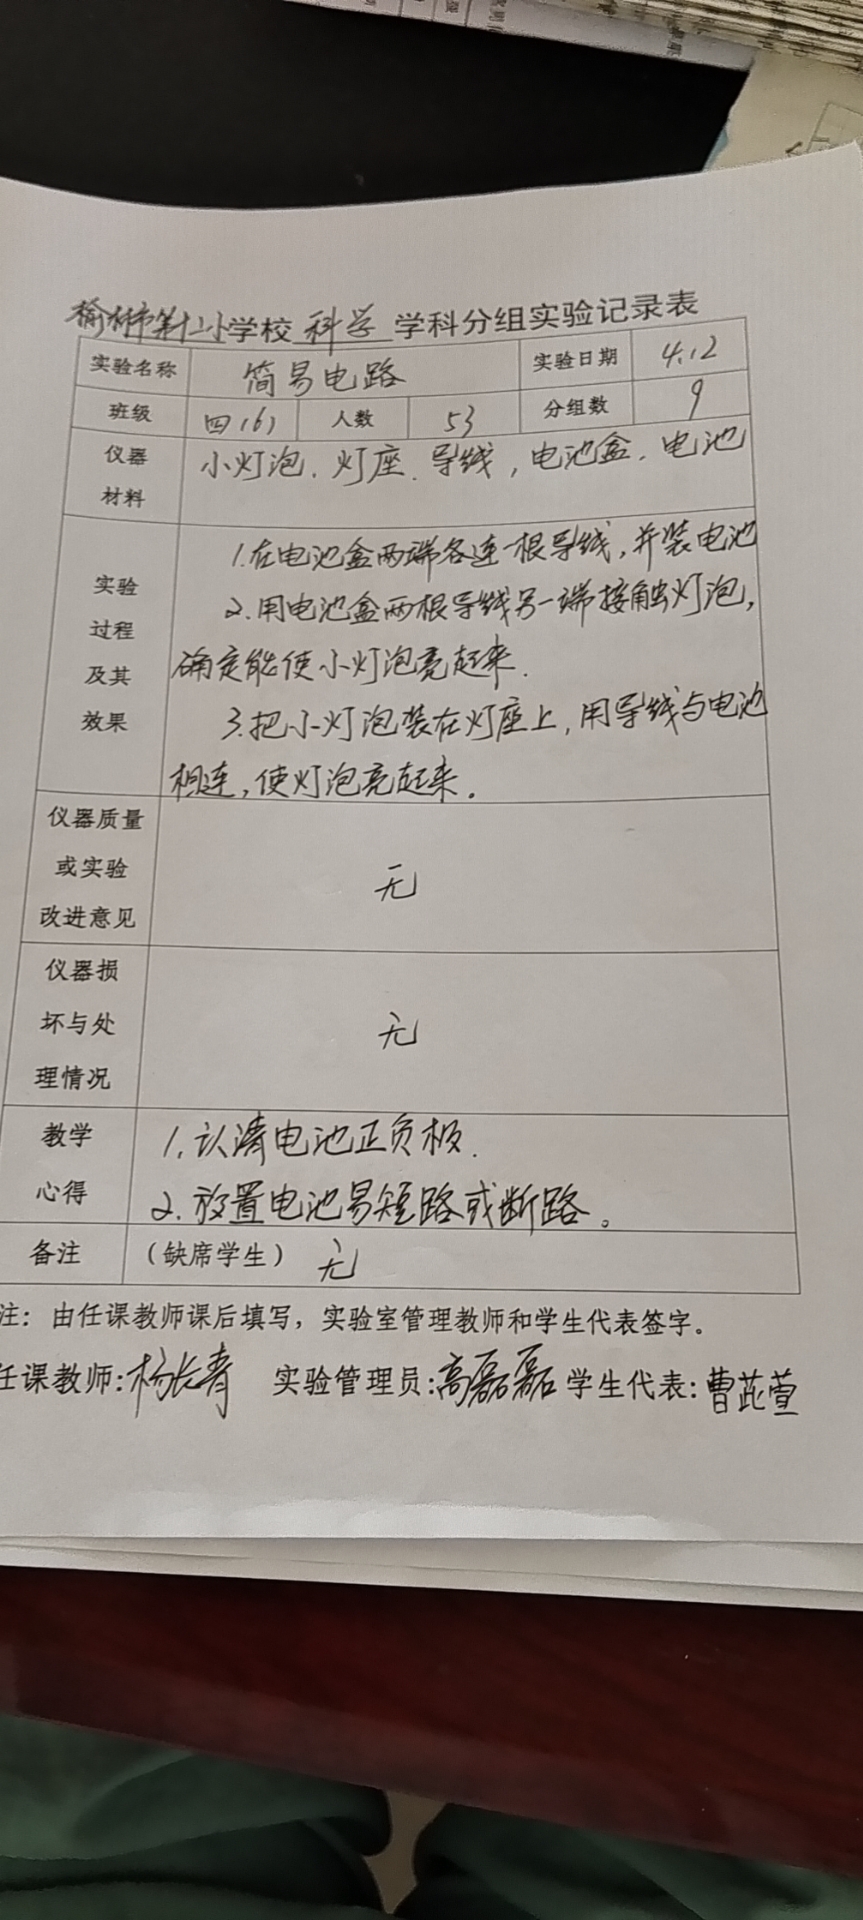 榆树市第十二小学校 科学 学科分组实验记录表
实验名称 简易电路 实验日期 4.12
班级 四(6) 人数 53 分组数 9
仪器材料 小灯泡、灯座、导线，电池盒、电池
实验过程及其效果
1.在电池盒两端各连一根导线，并装电池
2.用电池盒两根导线另一端接触灯泡，
确定能使小灯泡亮起来.
3.把小灯泡装在灯座上，用导线与电池
相连，使灯泡亮起来.
仪器质量或实验改进意见 无
仪器损坏与处理情况 无
教学心得
1.认清电池正负极.
2.放置电池易短路或断路。
备注 （缺席学生） 无
注：由任课教师课后填写，实验室管理教师和学生代表签字。
任课教师:杨长青 实验管理员:高磊磊 学生代表:曹芷萱